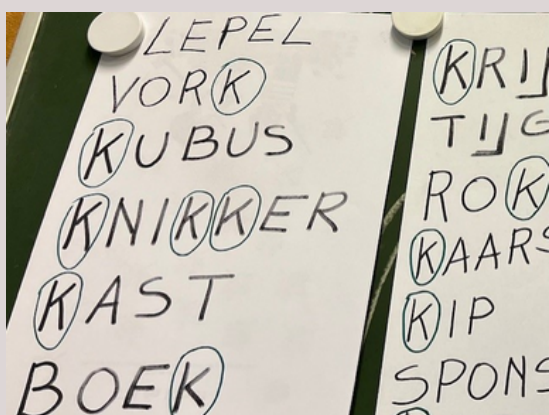 LEPEL
VORK
KUBUS
KNIKKER
KAST
BOEK
KRIJ
TIJG
ROK
KAARS
KIP
SPONS